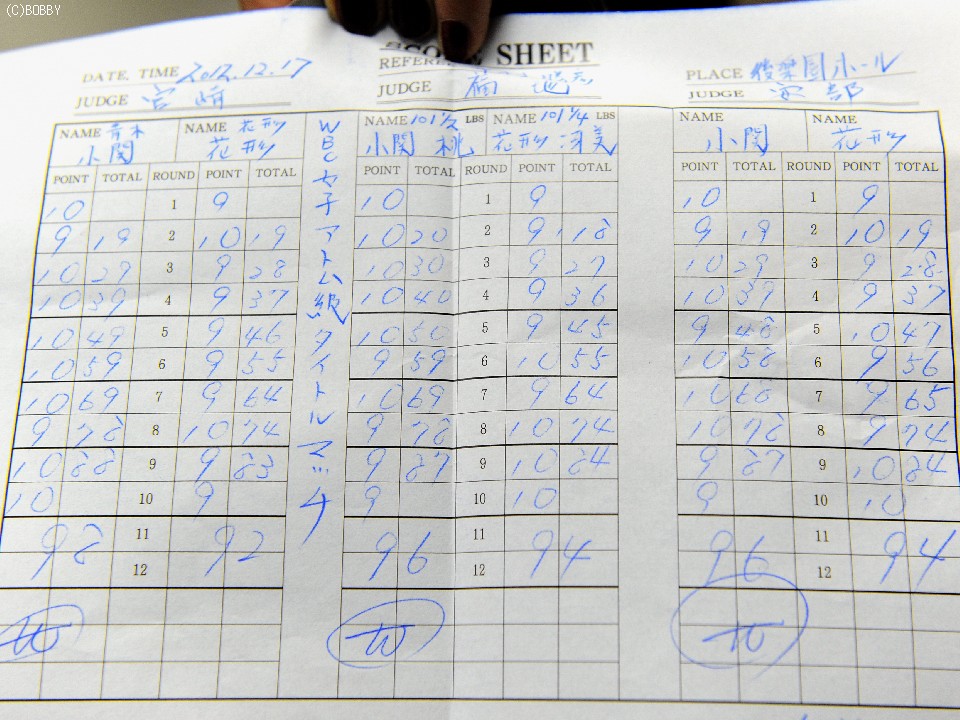 (C)BOBBY
SCORE SHEET
DATE, TIME 2012.12.17
REFEREE
PLACE 後楽園ホール
JUDGE 宮崎
JUDGE 福
JUDGE 安部
NAME 青木 小関 NAME 花形 花形
NAME 101 1/2 LBS 小関 桃 NAME 101 1/4 LBS 花形 冴美
NAME 小関 NAME 花形
WBC女子アトム級タイトルマッチ
POINT TOTAL ROUND POINT TOTAL POINT TOTAL ROUND POINT TOTAL POINT TOTAL ROUND POINT TOTAL
10 1 9 10 1 9 10 1 9
9 19 2 10 19 10 20 2 9 18 9 19 2 10 19
10 29 3 9 28 10 30 3 9 27 10 29 3 9 28
10 39 4 9 37 10 40 4 9 36 10 39 4 9 37
10 49 5 9 46 10 50 5 9 45 9 48 5 10 47
10 59 6 9 55 9 59 6 10 55 10 58 6 9 56
10 69 7 9 64 10 69 7 9 64 10 68 7 9 65
9 78 8 10 74 9 78 8 10 74 10 78 8 9 74
10 88 9 9 83 9 87 9 10 84 9 87 9 10 84
10 10 9 9 10 10 9 10 10
98 11 92 96 11 94 96 11 94
12 12 12
W W W